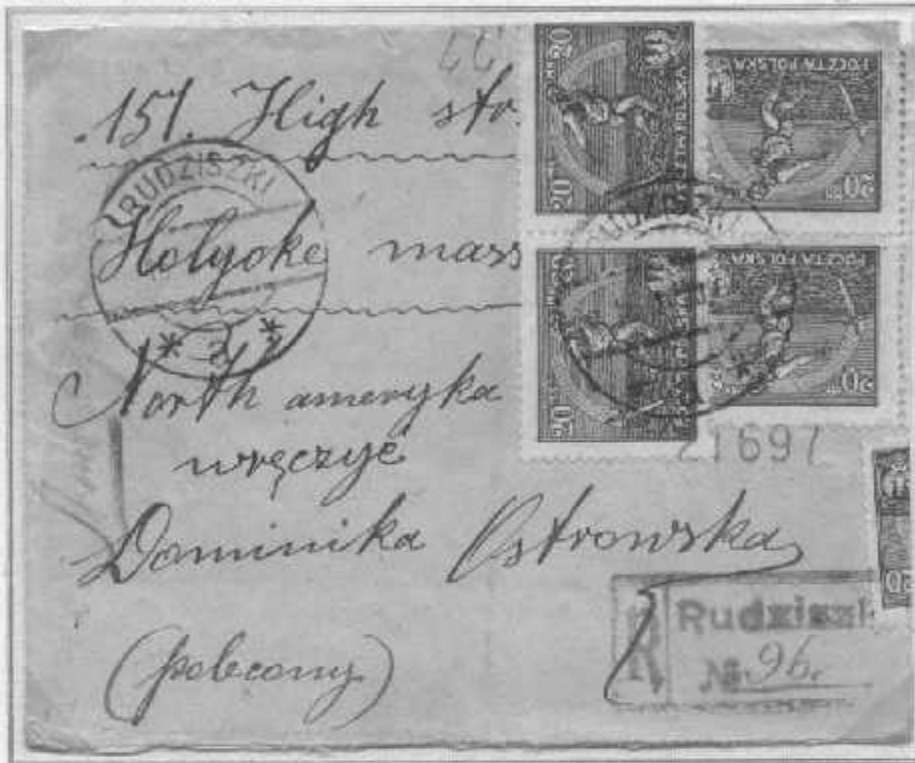 151. High str.
RUDZISZKI
Holyoke mass
North ameryka
wręczyć
Dominika Ostrowska
(polecony)
20 20
POCZTA POLSKA
20
20 20
POCZTA POLSKA
20
21697
R Rudziszk
№ 96.
20